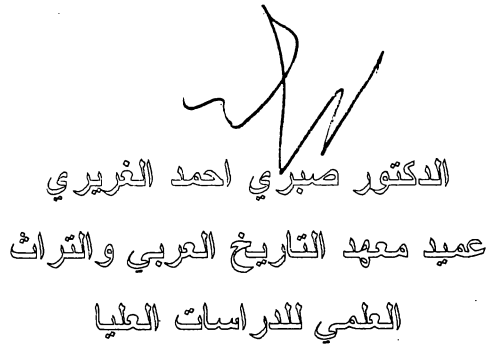 الدكتور صبري احمد الغريري
عميد معهد التاريخ العربي والتراث
العلمي للدراسات العليا